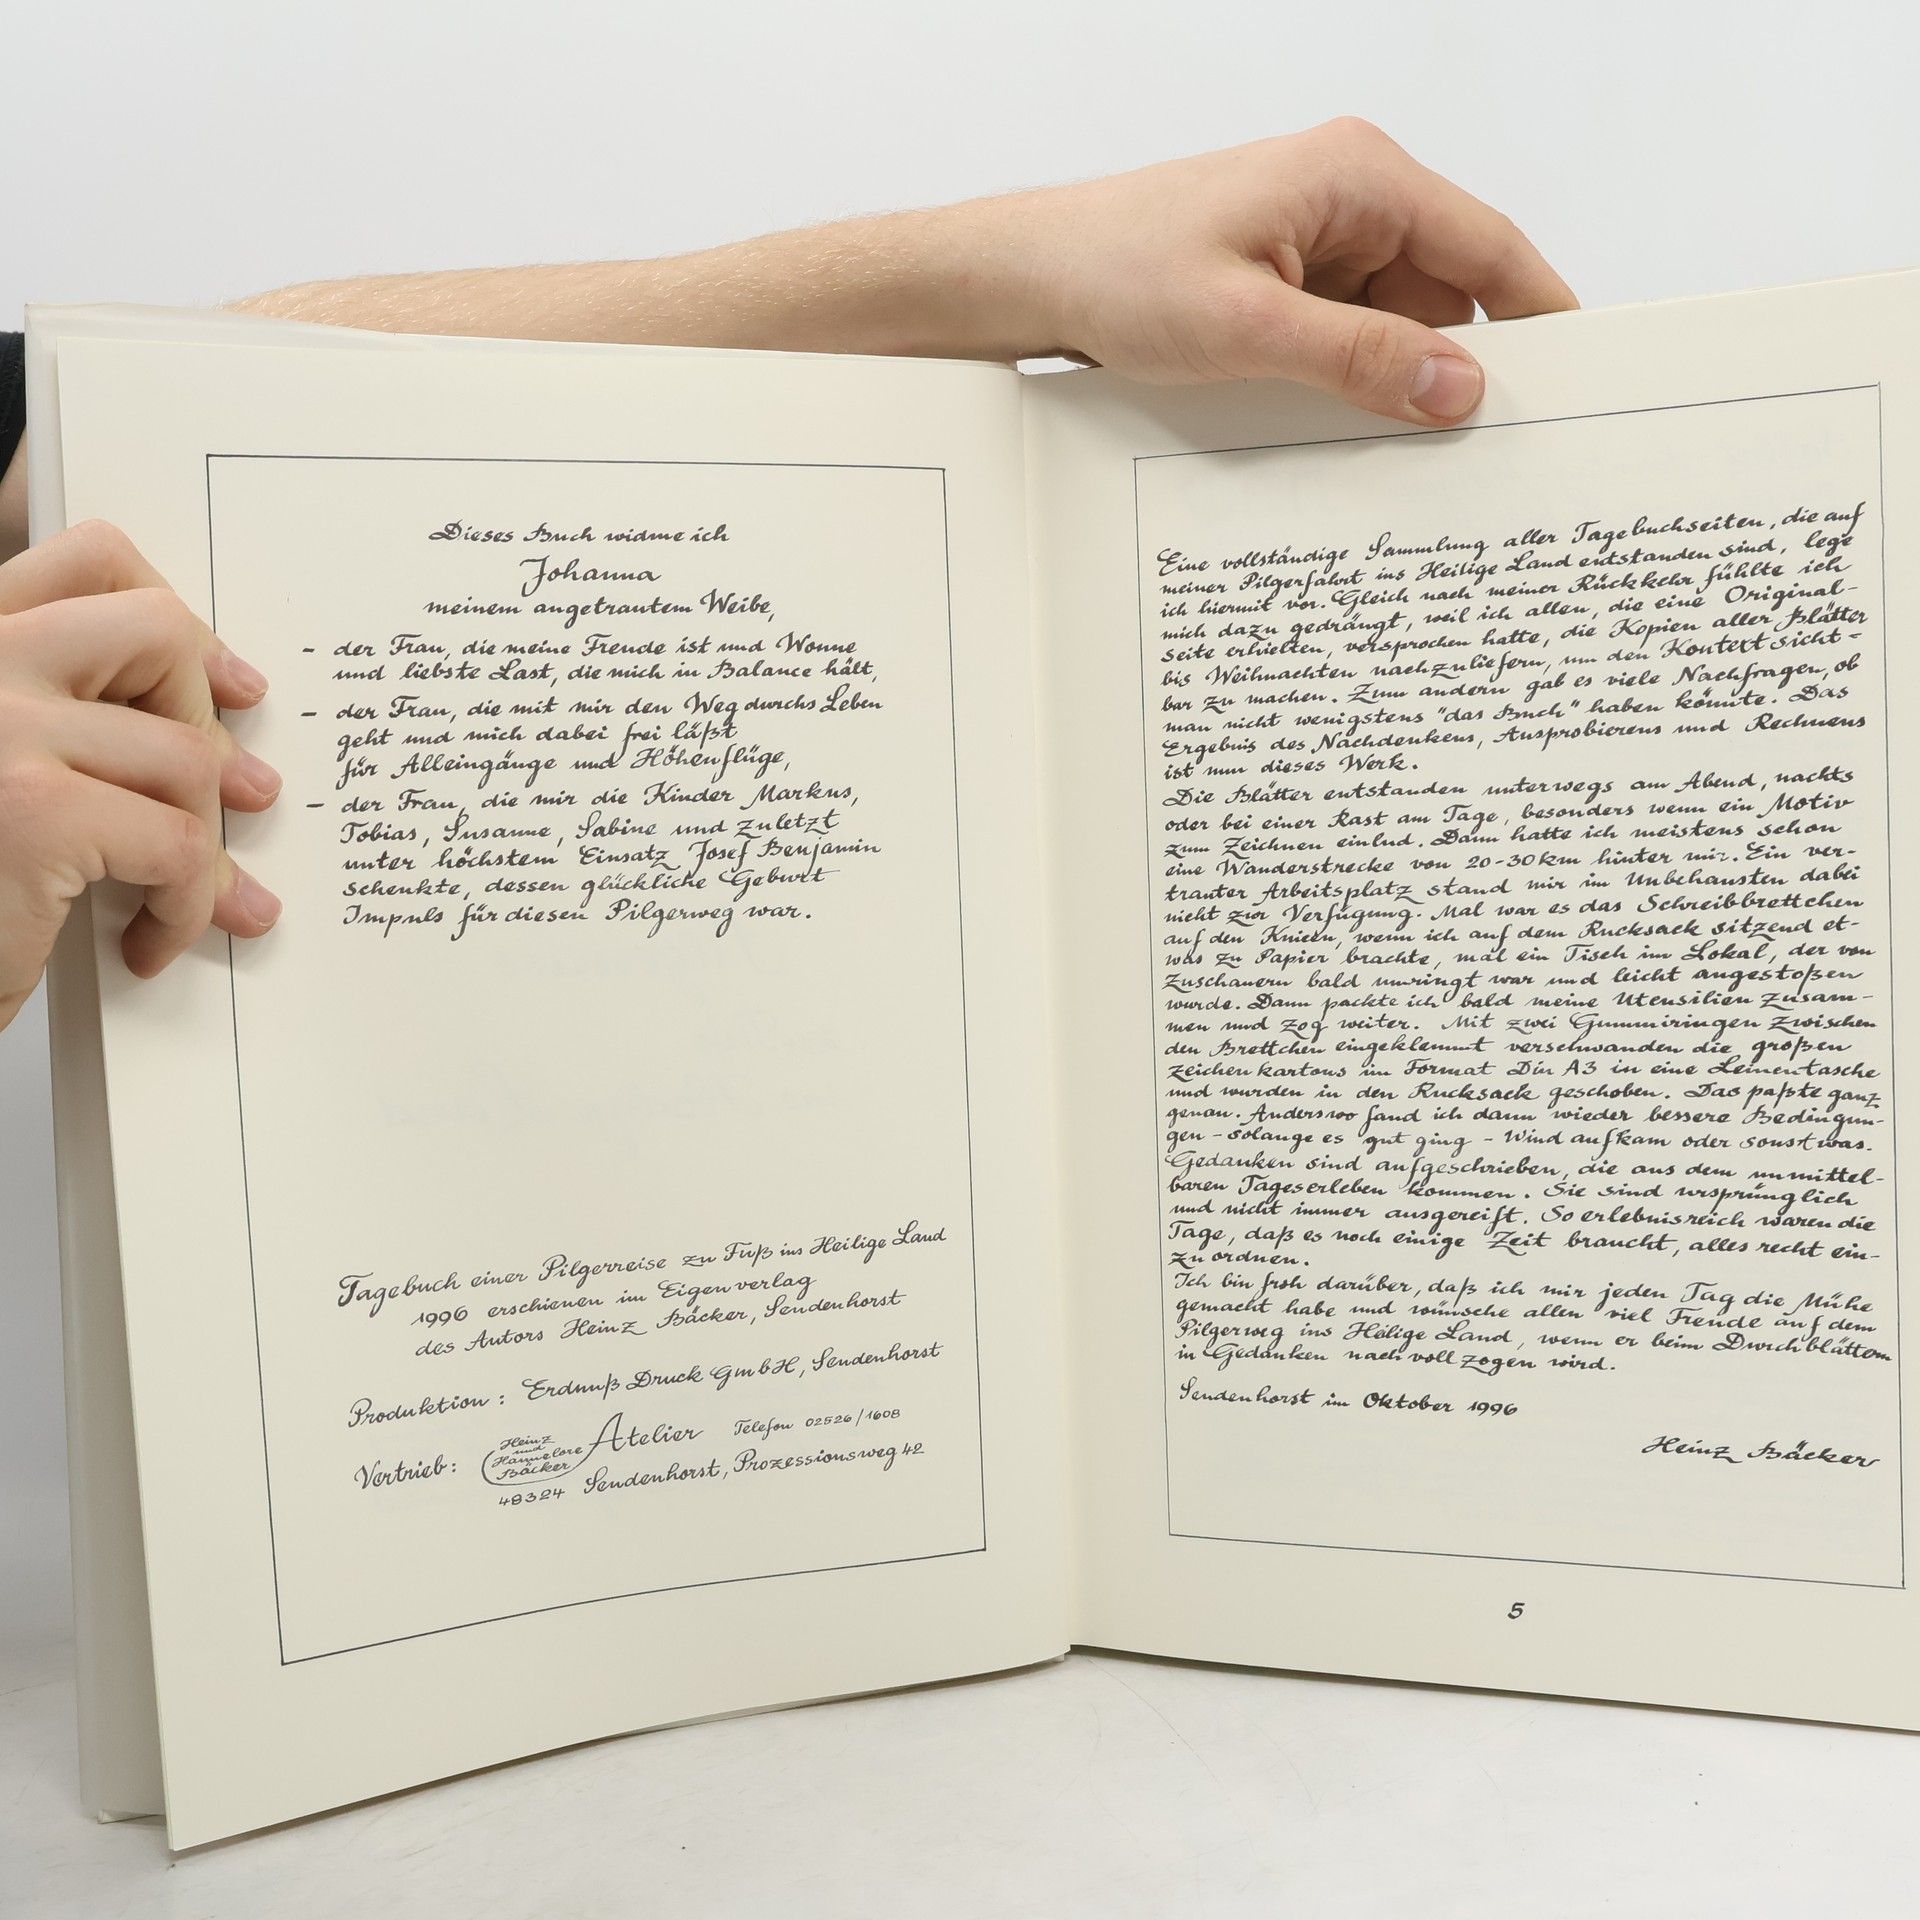 Dieses Buch widme ich
Johanna
meinem angetrautem Weibe,
– der Frau, die meine Freude ist und Wonne
und liebste Last, die mich in Balance hält,
– der Frau, die mit mir den Weg durchs Leben
geht und mich dabei frei läßt
für Alleingänge und Höhenflüge,
– der Frau, die mir die Kinder Markus,
Tobias, Susanne, Sabine und zuletzt
unter höchstem Einsatz Josef Benjamin
schenkte, dessen glückliche Geburt
Impuls für diesen Pilgerweg war.
Tagebuch einer Pilgerreise zu Fuß ins Heilige Land
1996 erschienen im Eigenverlag
des Autors Heinz Bäcker, Sendenhorst
Produktion: Erdnuß Druck GmbH, Sendenhorst
Vertrieb: Heinz und Hannelore Bäcker Atelier Telefon 02526/1608
48324 Sendenhorst, Prozessionsweg 42
Eine vollständige Sammlung aller Tagebuchseiten, die auf
meiner Pilgerfahrt ins Heilige Land entstanden sind, lege
ich hiermit vor. Gleich nach meiner Rückkehr fühlte ich
mich dazu gedrängt, weil ich allen, die eine Original-
seite erhielten, versprochen hatte, die Kopien aller Blätter
bis Weihnachten nachzuliefern, um den Kontext sicht-
bar zu machen. Zum andern gab es viele Nachfragen, ob
man nicht wenigstens "das Buch" haben könnte. Das
Ergebnis des Nachdenkens, Ausprobierens und Rechnens
ist nun dieses Werk.
Die Blätter entstanden unterwegs am Abend, nachts
oder bei einer Rast am Tage, besonders wenn ein Motiv
zum Zeichnen einlud. Dann hatte ich meistens schon
eine Wanderstrecke von 20-30 km hinter mir. Ein ver-
trauter Arbeitsplatz stand mir im Unbehausten dabei
nicht zur Verfügung. Mal war es das Schreibbrettchen
auf den Knieen, wenn ich auf dem Rucksack sitzend et-
was zu Papier brachte, mal ein Tisch im Lokal, der von
Zuschauern bald umringt war und leicht angestoßen
wurde. Dann packte ich bald meine Utensilien zusam-
men und zog weiter. Mit zwei Gummiringen zwischen
den Brettchen eingeklemmt verschwanden die großen
Zeichenkartons im Format Din A3 in eine Leinentasche
und wurden in den Rucksack geschoben. Das paßte ganz
genau. Anderswo fand ich dann wieder bessere Bedingun-
gen - solange es gut ging - Wind aufkam oder sonst was.
Gedanken sind aufgeschrieben, die aus dem unmittel-
baren Tageserleben kommen. Sie sind ursprünglich
und nicht immer ausgereift. So erlebnisreich waren die
Tage, daß es noch einige Zeit braucht, alles recht ein-
zuordnen.
Ich bin froh darüber, daß ich mir jeden Tag die Mühe
gemacht habe und wünsche allen viel Freude auf dem
Pilgerweg ins Heilige Land, wenn er beim Durchblättern
in Gedanken nachvollzogen wird.
Sendenhorst im Oktober 1996
Heinz Bäcker
5